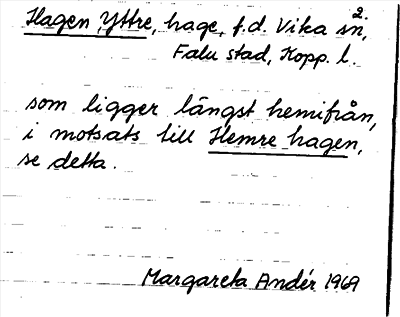 Hagen, Yttre, hage, f.d. Vika sn, 2.
Falu stad, Kopp. l.
som ligger längst hemifrån,
i motsats till Hemre hagen,
se detta.
Margareta Andér 1969